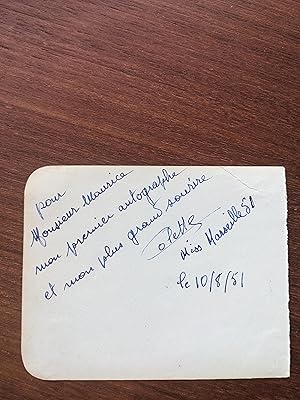 pour
Monsieur Maurice
mon premier autographe
et mon plus grand sourire
Colette
Miss Marseille 51
le 10/8/51